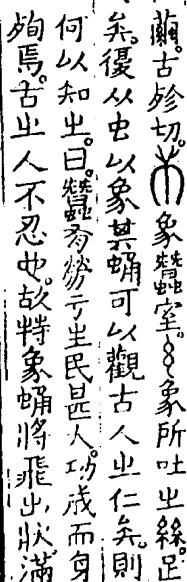 繭。古殄切。象蠶室。象所吐之絲。足
矣。復从虫以象其蛹。可以觀古人之仁矣。則
何以知之。曰。蠶有勞于生民甚大。功成而身
殉焉。古之人不忍也。故特象蛹將飛出狀。滿